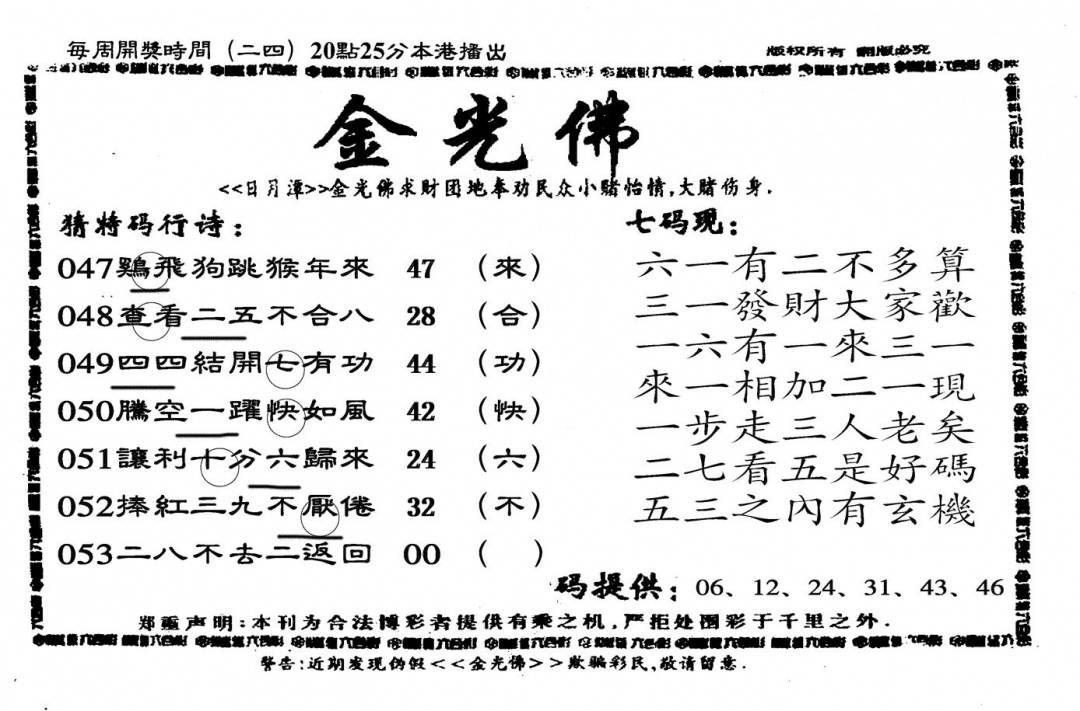 每周開獎時間（二四）20點25分本港播出
版权所有 翻版必究
金光佛
<<日月潭>>金光佛求财团地奉劝民众小赌怡情,大赌伤身.
猜特码行诗：
047鷄飛狗跳猴年來 47 （來）
048查看二五不合八 28 （合）
049四四結開七有功 44 （功）
050騰空一躍快如風 42 （快）
051讓利十分六歸來 24 （六）
052捧紅三九不厭倦 32 （不）
053二八不去二返回 00 （ ）
七码现：
六一有二不多算
三一發財大家歡
一六有一來三一
來一相加二一現
一步走三人老矣
二七看五是好碼
五三之內有玄機
码提供：06、12、24、31、43、46
郑重声明:本刊为合法博彩者提供有乘之机,严拒处围彩于千里之外.
警告:近期发现伪假<<金光佛>>欺骗彩民,敬请留意.